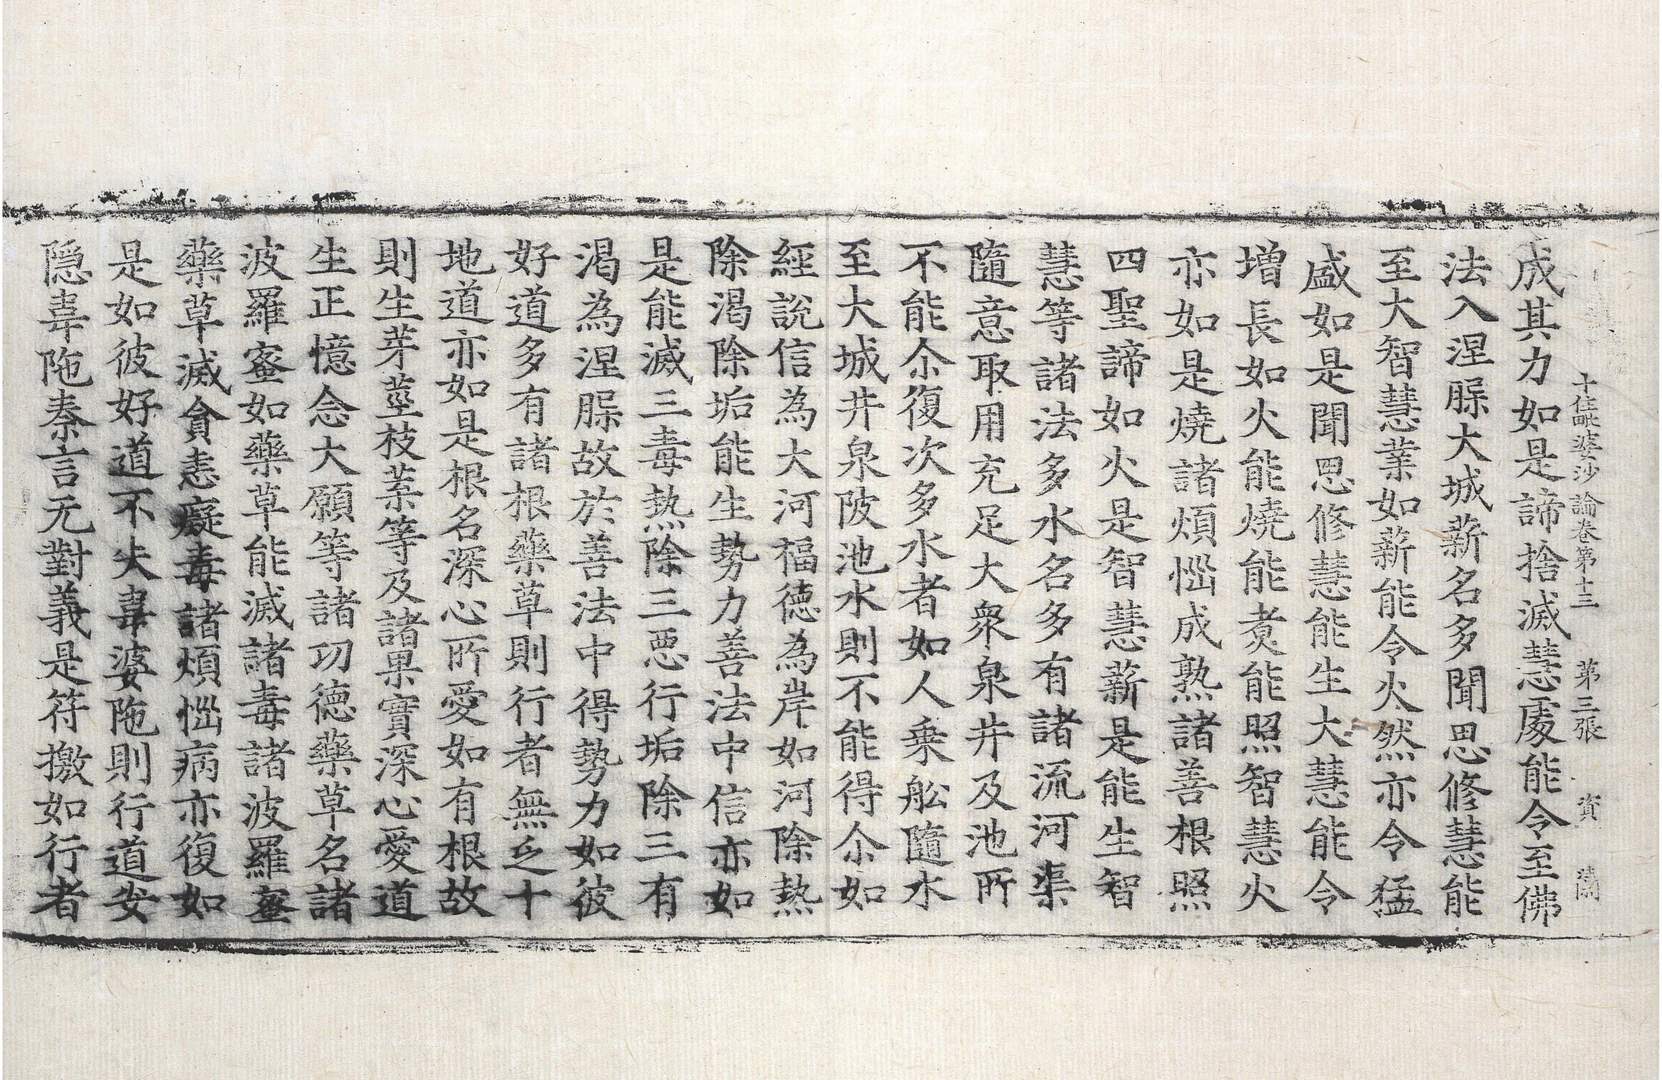 十住毗婆沙論卷第十三　第三張　資　蘭
成其力如是諦捨滅慧處能令至佛
法入涅脲大城薪名多聞思修慧能
至大智慧業如薪能令火然亦令猛
盛如是聞思修慧能生大慧能令
增長如火能燒能煑能照智慧火
亦如是燒諸煩惱成熟諸善根照
四聖諦如火是智慧薪是能生智
慧等諸法多水名多有諸流河渠
隨意取用充足大衆泉井及池所
不能尒復次多水者如人乗舩隨水
至大城井泉陂池水則不能得尒如
經說信為大河福德為岸如河除熱
除渴除垢能生勢力善法中信亦如
是能滅三毒熱除三惡行垢除三有
渴為涅脲故於善法中得勢力如彼
好道多有諸根藥草則行者無乏十
地道亦如是根名深心所愛如有根故
則生芽莖枝葉等及諸果實深心愛道
生正憶念大願等諸功德藥草名諸
波羅蜜如藥草能滅諸毒諸波羅蜜
藥草滅貪恚癡毒諸煩惱病亦復如
是如彼好道不失韋婆陁則行道安
隠韋陁秦言无對義是符檄如行者